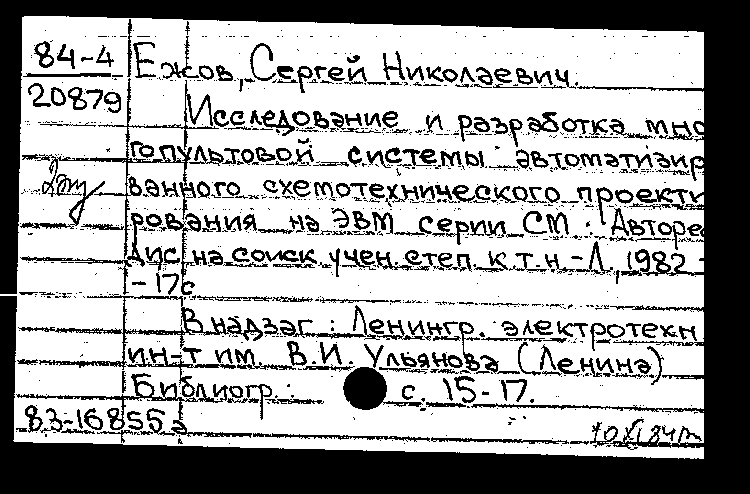 84-4 Ежов, Сергей Николаевич.
20879 Исследование и разработка мно
гопультовой системы автоматизир
ванного схемотехнического проекти
рования на ЭВМ серии СМ : Авторе
Дис на соиск учен. степ к.т.н -Л, 1982 -
- 17с
В надзаг : Ленингр. электротехн
ин-т им. В.И. Ульянова (Ленина)
Библиогр. : с. 15-17.
83-16855а